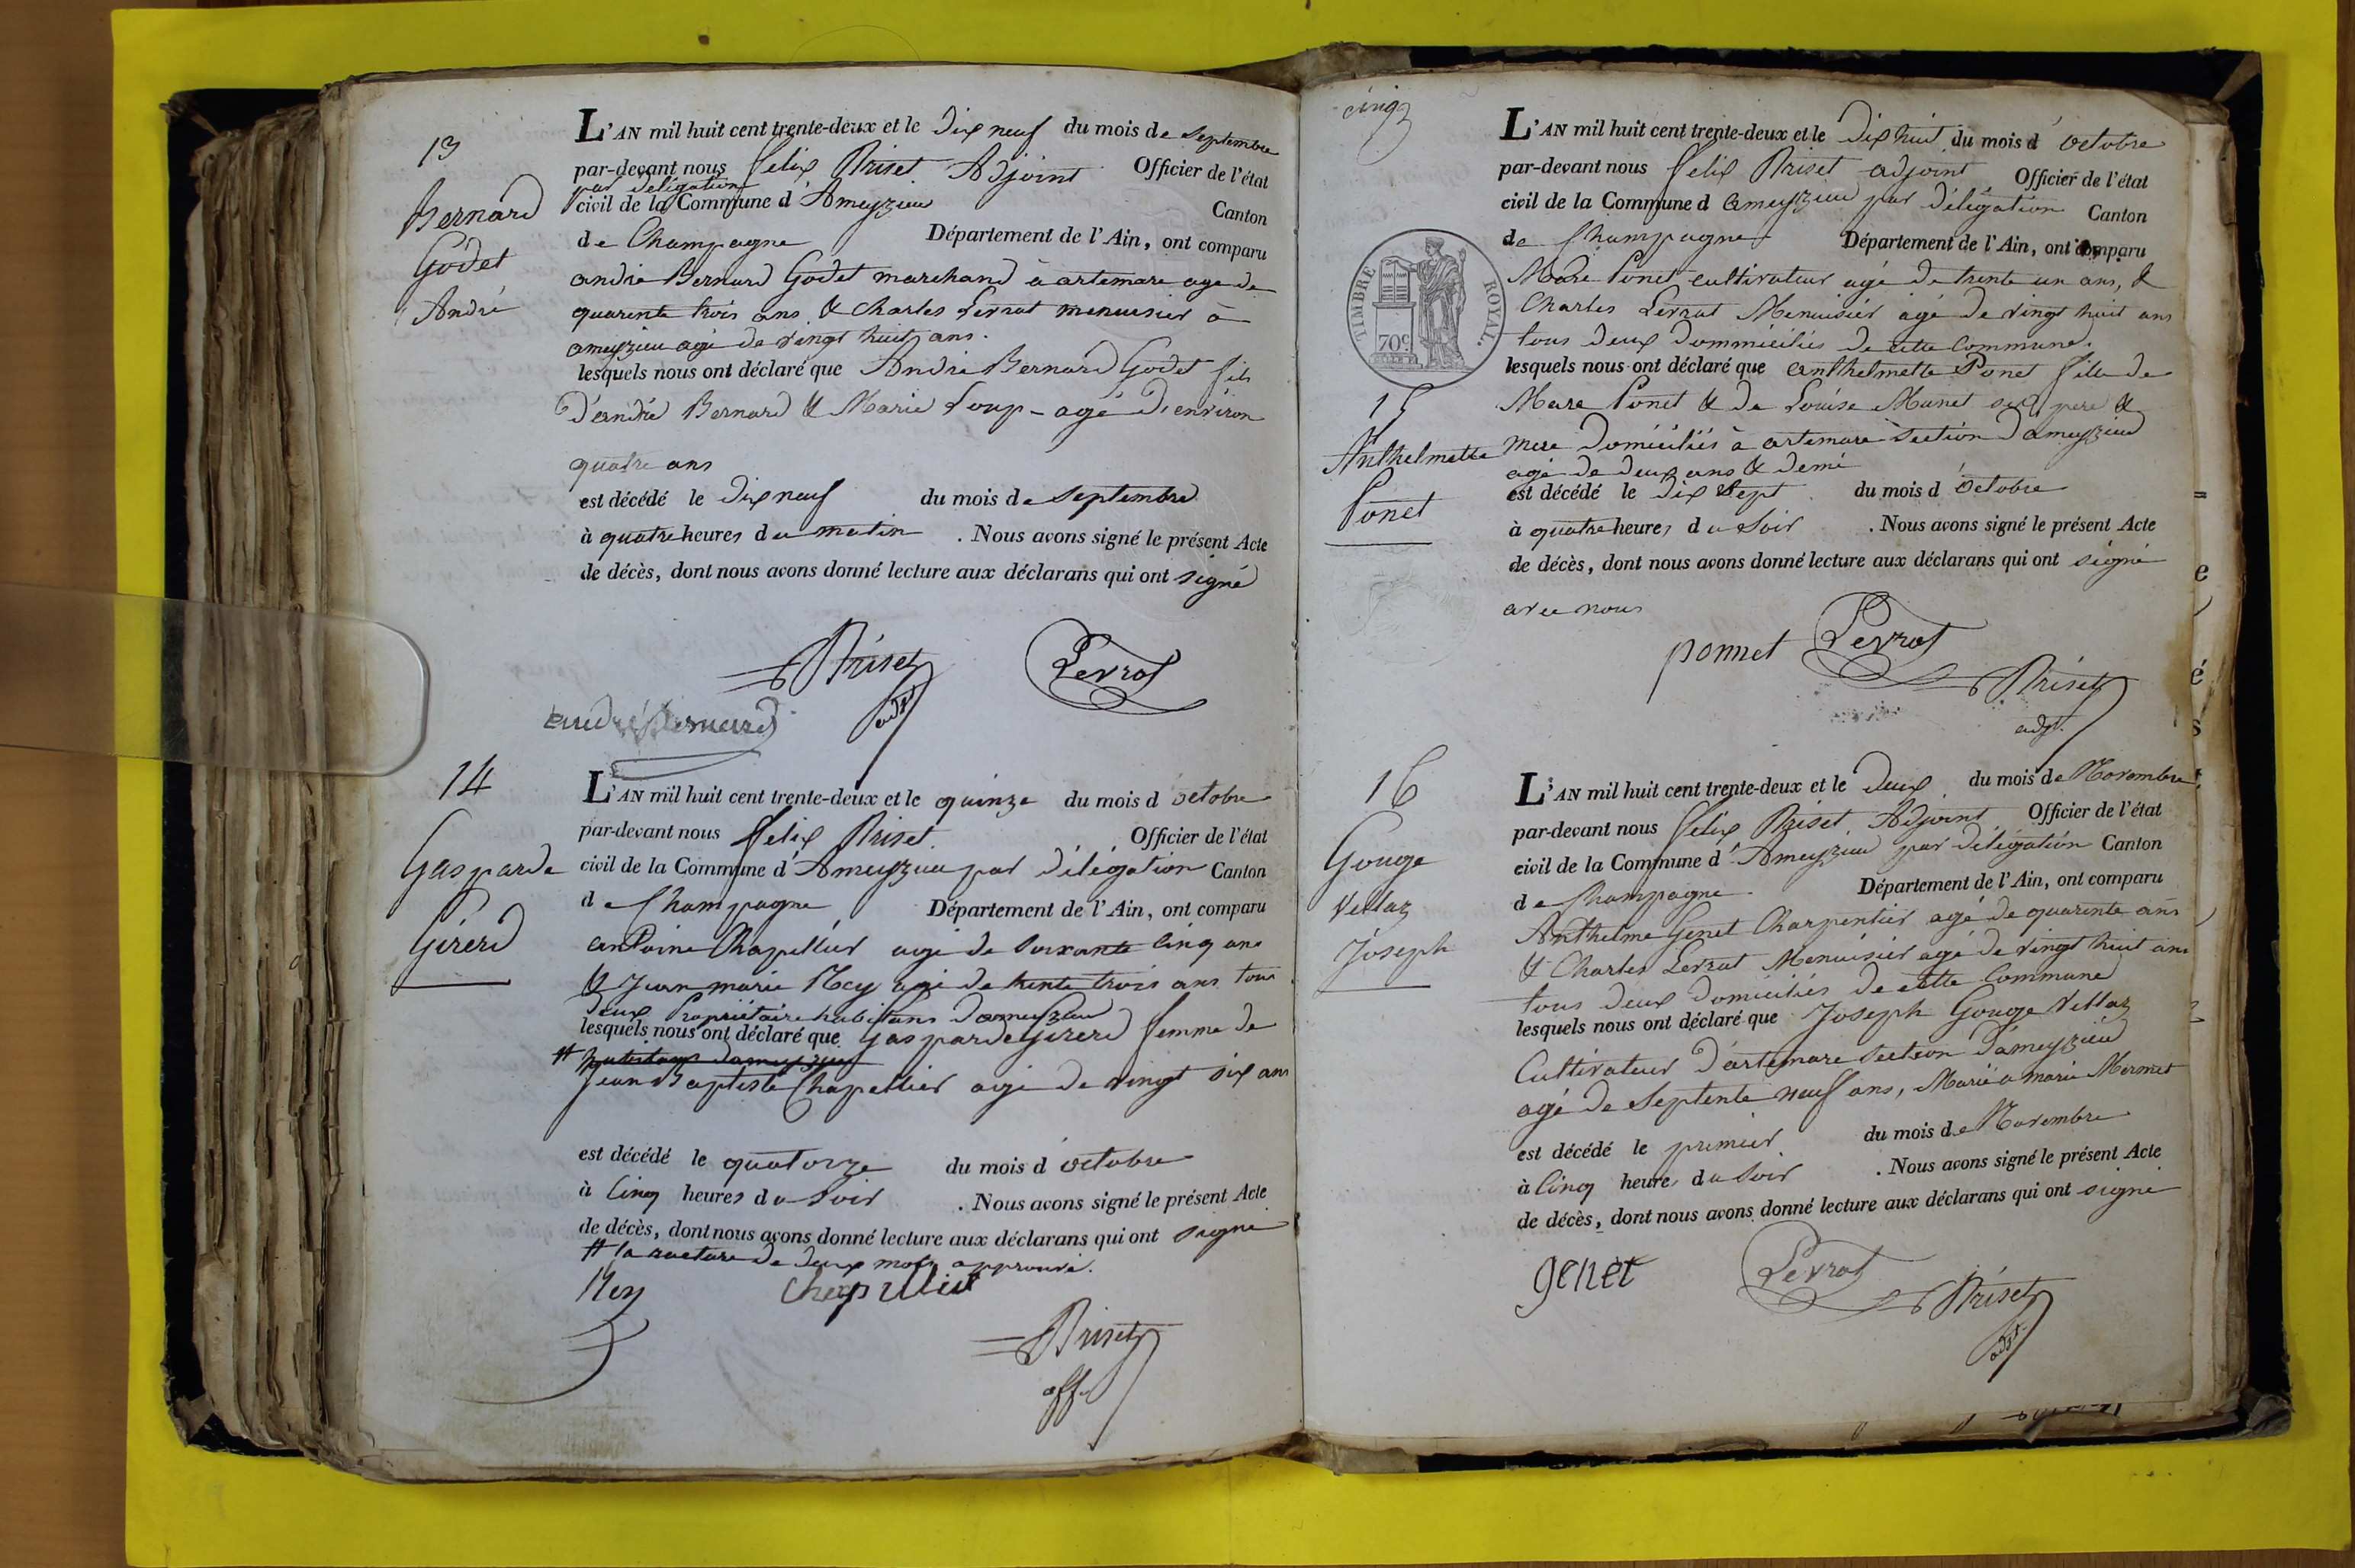 13
Bernard
Godet
André
L'AN mil huit cent trente-deux et le dix neuf du mois de Septembre
par-devant nous felix Briset Adjoint Officier de l'état
par délégation
civil de la Commune d'Ameyzieu Canton
de Champagne Département de l'Ain, ont comparu
andré Bernard Godet marchand à artemare agé de
quarente trois ans & Charles Levrat menuisier à
ameyzieu agé de vingt huit ans.
lesquels nous ont déclaré que André Bernard Godet fils
d'andré Bernard & Marie Loup - agé d'environ
quatre ans
est décédé le dix neuf du mois de Septembre
à quatre heures du matin . Nous avons signé le présent Acte
de décès, dont nous avons donné lecture aux déclarans qui ont signé
Briset Levrat
adjt
andré Bernard
14
Gasparde
Girerd
L'AN mil huit cent trente-deux et le quinze du mois d'octobre
par-devant nous felix Briset Officier de l'état
civil de la Commune d'Ameyzieu par délégation Canton
de Champagne Département de l'Ain, ont comparu
antoine Chapellier agé de soixante cinq ans
& Jean marie Rey agé de trente trois ans tous
deux Propriétaire habitans d'ameyzieu
lesquels nous ont déclaré que Gasparde Girerd femme de
# habitans d'ameyzieu
Jean Baptiste Chapellier agé de vingt six ans
est décédé le quatorze du mois d'octobre
à Cinq heures du Soir . Nous avons signé le présent Acte
de décès, dont nous avons donné lecture aux déclarans qui ont signé
# la rature de deux mots approuvé.
Rey Chapellier
Briset
off.
cinq
TIMBRE ROYAL.
70c
15
Anthelmette
Ponet
L'AN mil huit cent trente-deux et le dix huit du mois d'octobre
par-devant nous felix Briset adjoint Officier de l'état
civil de la Commune d ameyzieu par délégation Canton
de Champagne Département de l'Ain, ont comparu
Marc Ponet cultivateur agé de trente un ans, &
Charles Levrat Menuisier agé de vingt huit ans
tous deux dommiciliés de cette Commune.
lesquels nous ont déclaré que anthelmette Ponet fille de
Marc Ponet & de Louise Munet ses père &
mere domiciliés à artemare Section d'ameyzieu
agé de deux ans & demi
est décédé le dix Sept du mois d'Octobre
à quatre heures du Soir . Nous avons signé le présent Acte
de décès, dont nous avons donné lecture aux déclarans qui ont signé
avec nous
ponnet Levrat
Briset
adjt.
16
Gouge
Vettaz
Joseph
L'AN mil huit cent trente-deux et le deux du mois de Novembre
par-devant nous felix Briset Adjoint Officier de l'état
civil de la Commune d'Ameyzieu par délégation Canton
de Champagne Département de l'Ain, ont comparu
Anthelme Genet Charpentier agé de quarente ans
& Charles Levrat Menuisier agé de vingt huit ans
tous deux domiciliés de cette Commune
lesquels nous ont déclaré que Joseph Gouge Vettaz
Cultivateur d'artemare Section d'ameyzieu
agé de Septente neuf ans, Marié a marie Mermet
est décédé le premier du mois de Novembre
à Cinq heures du Soir . Nous avons signé le présent Acte
de décès, dont nous avons donné lecture aux déclarans qui ont signé
genet Levrat
Briset
adjt